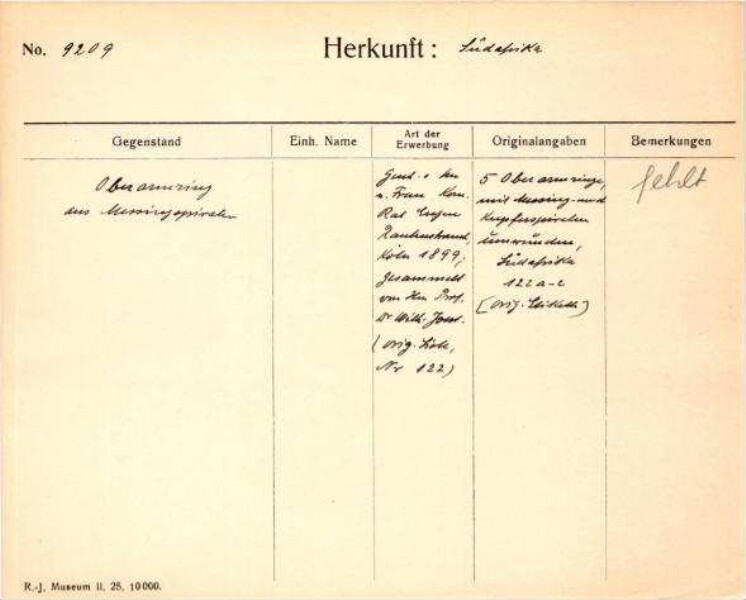 No. 9209 Herkunft: Südafrika
Gegenstand Einh. Name Art der Erwerbung Originalangaben Bemerkungen
Oberarmring
aus Messingspiralen
Gesch. v. Hn
u. Frau Kom.
Rat Eugen
Rautenstrauch,
Köln 1899;
gesammelt
von Hn Prof.
Dr Wilh. Joest.
(orig. Liste,
Nr 122)
5 Oberarmringe,
mit Messing- und
Kupferspiralen
umwunden,
Südafrika
122 a-e
(orig. Etikett)
fehlt
R.-J. Museum II. 25. 10000.